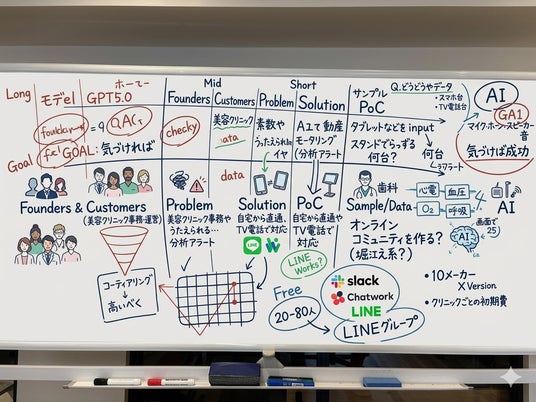 Long
モデl
ホーてー
GPT5.0
Mid
Founders
Customers
Short
Problem
Solution
サンプル
PoC
Q.どうどうやデータ
・スマホ台
・TV電話台
AI
GA1
マイク・ホーン・スピーカー
音
気づけば成功
= 9 QACr
checky
美容クリニック
data
素数や
うったえられ
イヤ
A工で動産
モータリング
(分析アラート
タブレットなどをinput
スタンドでらっずる
何台?
何台
Goal
GOAL: 気づければ
data
Founders & Customers
(美容クリニック事務・運営)
Problem
美容クリニック事務や
うったえられる…
分析アラート
Solution
自宅から直通、
TV電話で対応
LINE
PoC
自宅から直通や
TV電話で
対応
歯科
Sample/Data
心電
血圧
O2
呼吸
AI
画面で
25
オンライン
コミュニティを作る?
(堀江系?)
コーティアリング
↓
高いべく
LINE
Works?
Free
20-80人
slack
Chatwork
LINE
LINEグループ
・10メーカー
X Version
・クリニックごとの初期費